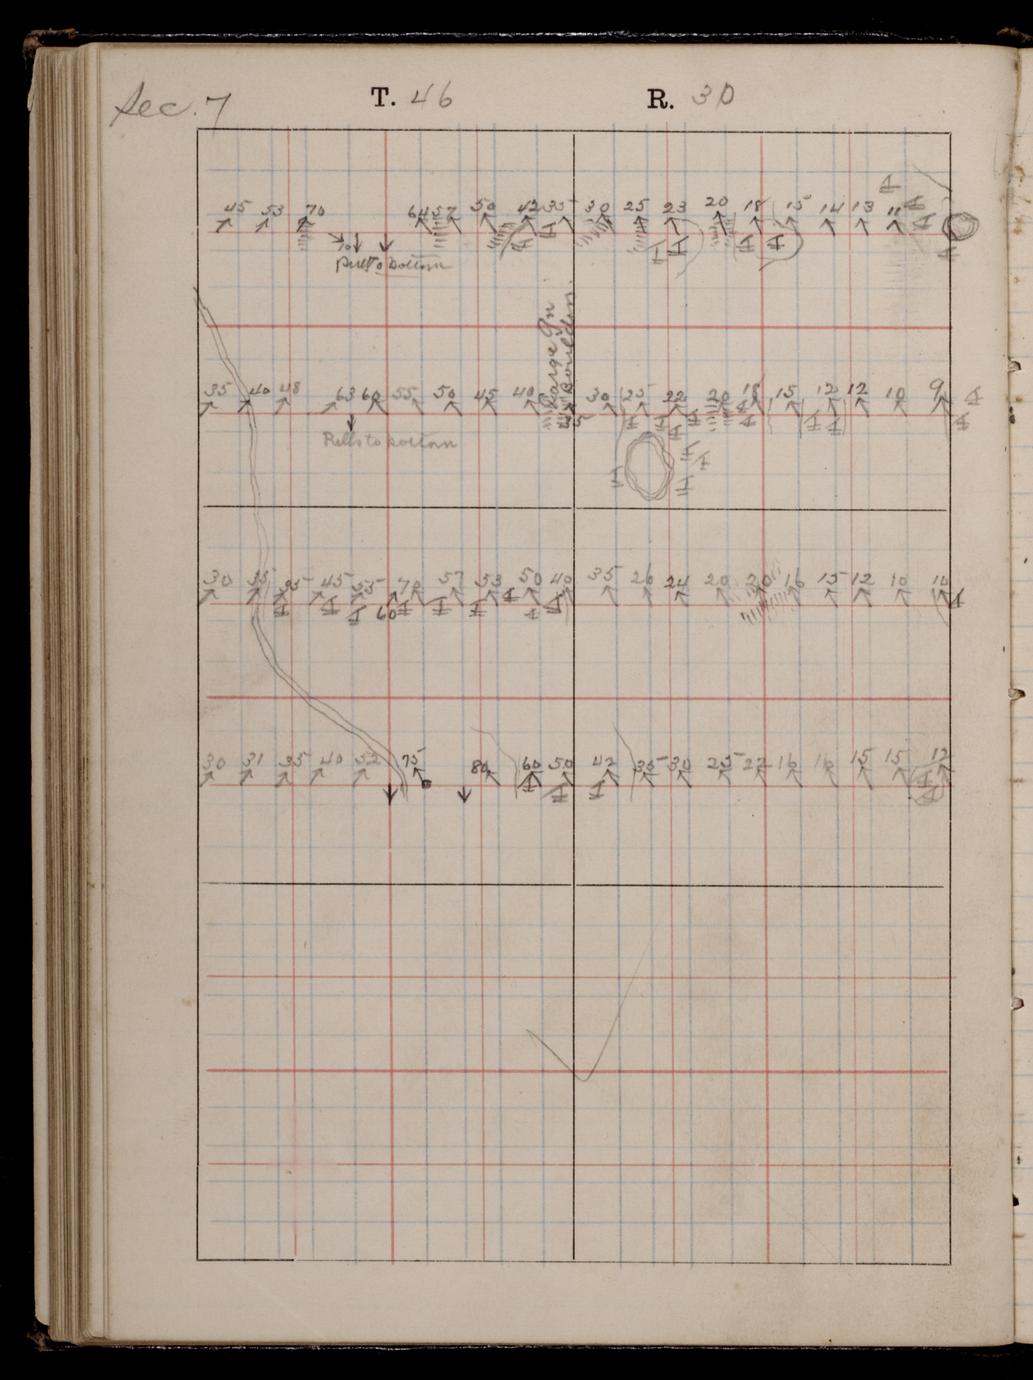 Sec. 7 T. 46 R. 30
45 53 70 64 57 50 42 35 30 25 23 20 18 15 14 13 11
70
Pulls to bottom
Large Gn
Boulder
35 40 48 63 60 55 50 45 40 30 25 22 20 18 15 12 12 10 9
35
Pulls to bottom
30 35 35 45 55 70 57 53 50 40 35 26 24 20 20 16 15 12 10 10
60
30 31 35 40 52 75 80 60 50 42 35 30 25 22 16 16 15 15 12